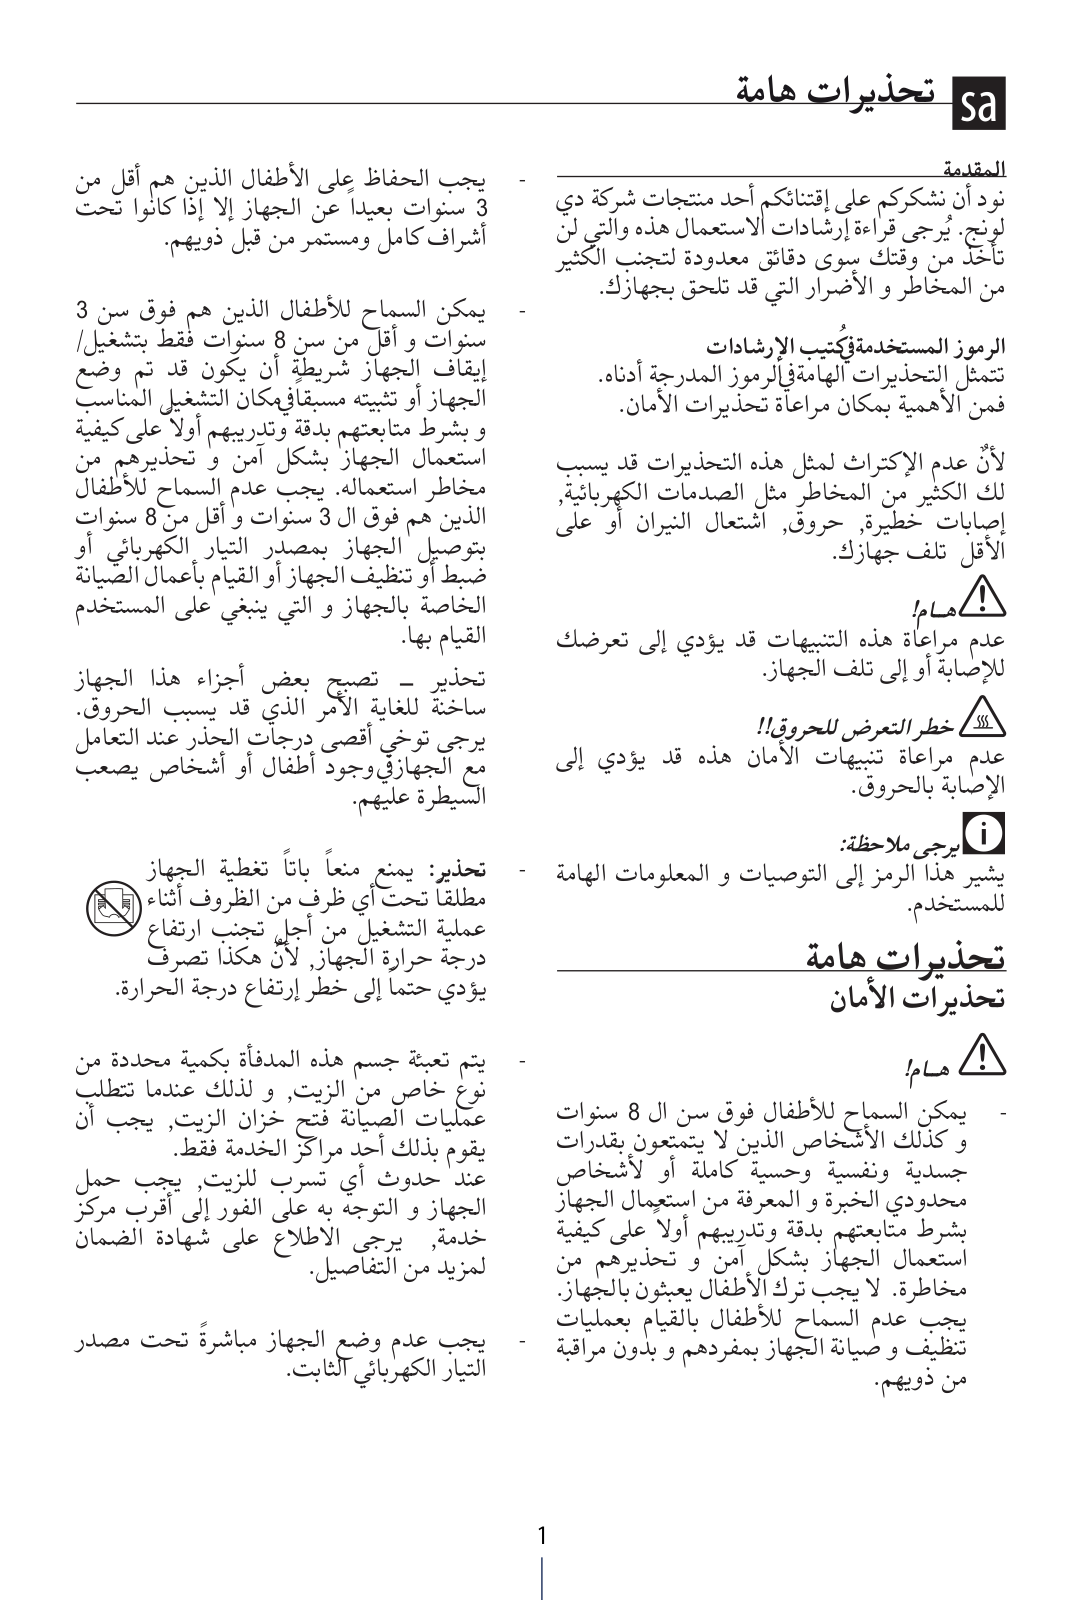 sa تحذيرات هامة
المقدمة
نود أن نشكركم على إقتنائكم أحد منتجات شركة دي
لونج. يُرجى قراءة إرشادات الاستعمال هذه والتي لن
تأخذ من وقتك سوى دقائق معدودة لتجنب الكثير
من المخاطر و الأضرار التي قد تلحق بجهازك.
الرموز المستخدمة في كُتيب الإرشادات
تتمثل التحذيرات الهامة في الرموز المدرجة أدناه.
فمن الأهمية بمكان مراعاة تحذيرات الأمان.
لأنٌ عدم الإكتراث لمثل هذه التحذيرات قد يسبب
لك الكثير من المخاطر مثل الصدمات الكهربائية,
إصابات خطيرة, حروق, اشتعال النيران أو على
الأقل تلف جهازك.
هـام!
عدم مراعاة هذه التنبيهات قد يؤدي إلى تعرضك
للإصابة أو إلى تلف الجهاز.
خطر التعرض للحروق!!
عدم مراعاة تنبيهات الأمان هذه قد يؤدي إلى
الإصابة بالحروق.
يرجى ملاحظة:
يشير هذا الرمز إلى التوصيات و المعلومات الهامة
للمستخدم.
تحذيرات هامة
تحذيرات الأمان
هـام!
- يمكن السماح للأطفال فوق سن ال 8 سنوات
و كذلك الأشخاص الذين لا يتمتعون بقدرات
جسدية ونفسية وحسية كاملة أو لأشخاص
محدودي الخبرة و المعرفة من استعمال الجهاز
بشرط متابعتهم بدقة وتدريبهم أولاً على كيفية
استعمال الجهاز بشكل آمن و تحذيرهم من
مخاطرة. لا يجب ترك الأطفال يعبثون بالجهاز.
يجب عدم السماح للأطفال بالقيام بعمليات
تنظيف و صيانة الجهاز بمفردهم و بدون مراقبة
من ذويهم.
- يجب الحفاظ على الأطفال الذين هم أقل من
3 سنوات بعيداً عن الجهاز إلا إذا كانوا تحت
أشراف كامل ومستمر من قبل ذويهم.
- يمكن السماح للأطفال الذين هم فوق سن 3
سنوات و أقل من سن 8 سنوات فقط بتشغيل/
إيقاف الجهاز شريطة أن يكون قد تم وضع
الجهاز أو تثبيته مسبقاً في مكان التشغيل المناسب
و بشرط متابعتهم بدقة وتدريبهم أولاً على كيفية
استعمال الجهاز بشكل آمن و تحذيرهم من
مخاطر استعماله. يجب عدم السماح للأطفال
الذين هم فوق ال 3 سنوات و أقل من 8 سنوات
بتوصيل الجهاز بمصدر التيار الكهربائي أو
ضبط أو تنظيف الجهاز أو القيام بأعمال الصيانة
الخاصة بالجهاز و التي ينبغي على المستخدم
القيام بها.
تحذير – تصبح بعض أجزاء هذا الجهاز
ساخنة للغاية الأمر الذي قد يسبب الحروق.
يرجى توخي أقصى درجات الحذر عند التعامل
مع الجهاز في وجود أطفال أو أشخاص يصعب
السيطرة عليهم.
- تحذير: يمنع منعاً باتاً تغطية الجهاز
مطلقاً تحت أي ظرف من الظروف أثناء
عملية التشغيل من أجل تجنب ارتفاع
درجة حرارة الجهاز, لأنٌ هكذا تصرف
يؤدي حتماً إلى خطر إرتفاع درجة الحرارة.
- يتم تعبئة جسم هذه المدفأة بكمية محددة من
نوع خاص من الزيت, و لذلك عندما تتطلب
عمليات الصيانة فتح خزان الزيت, يجب أن
يقوم بذلك أحد مراكز الخدمة فقط.
عند حدوث أي تسرب للزيت, يجب حمل
الجهاز و التوجه به على الفور إلى أقرب مركز
خدمة, يرجى الاطلاع على شهادة الضمان
لمزيد من التفاصيل.
- يجب عدم وضع الجهاز مباشرةً تحت مصدر
التيار الكهربائي الثابت.
1